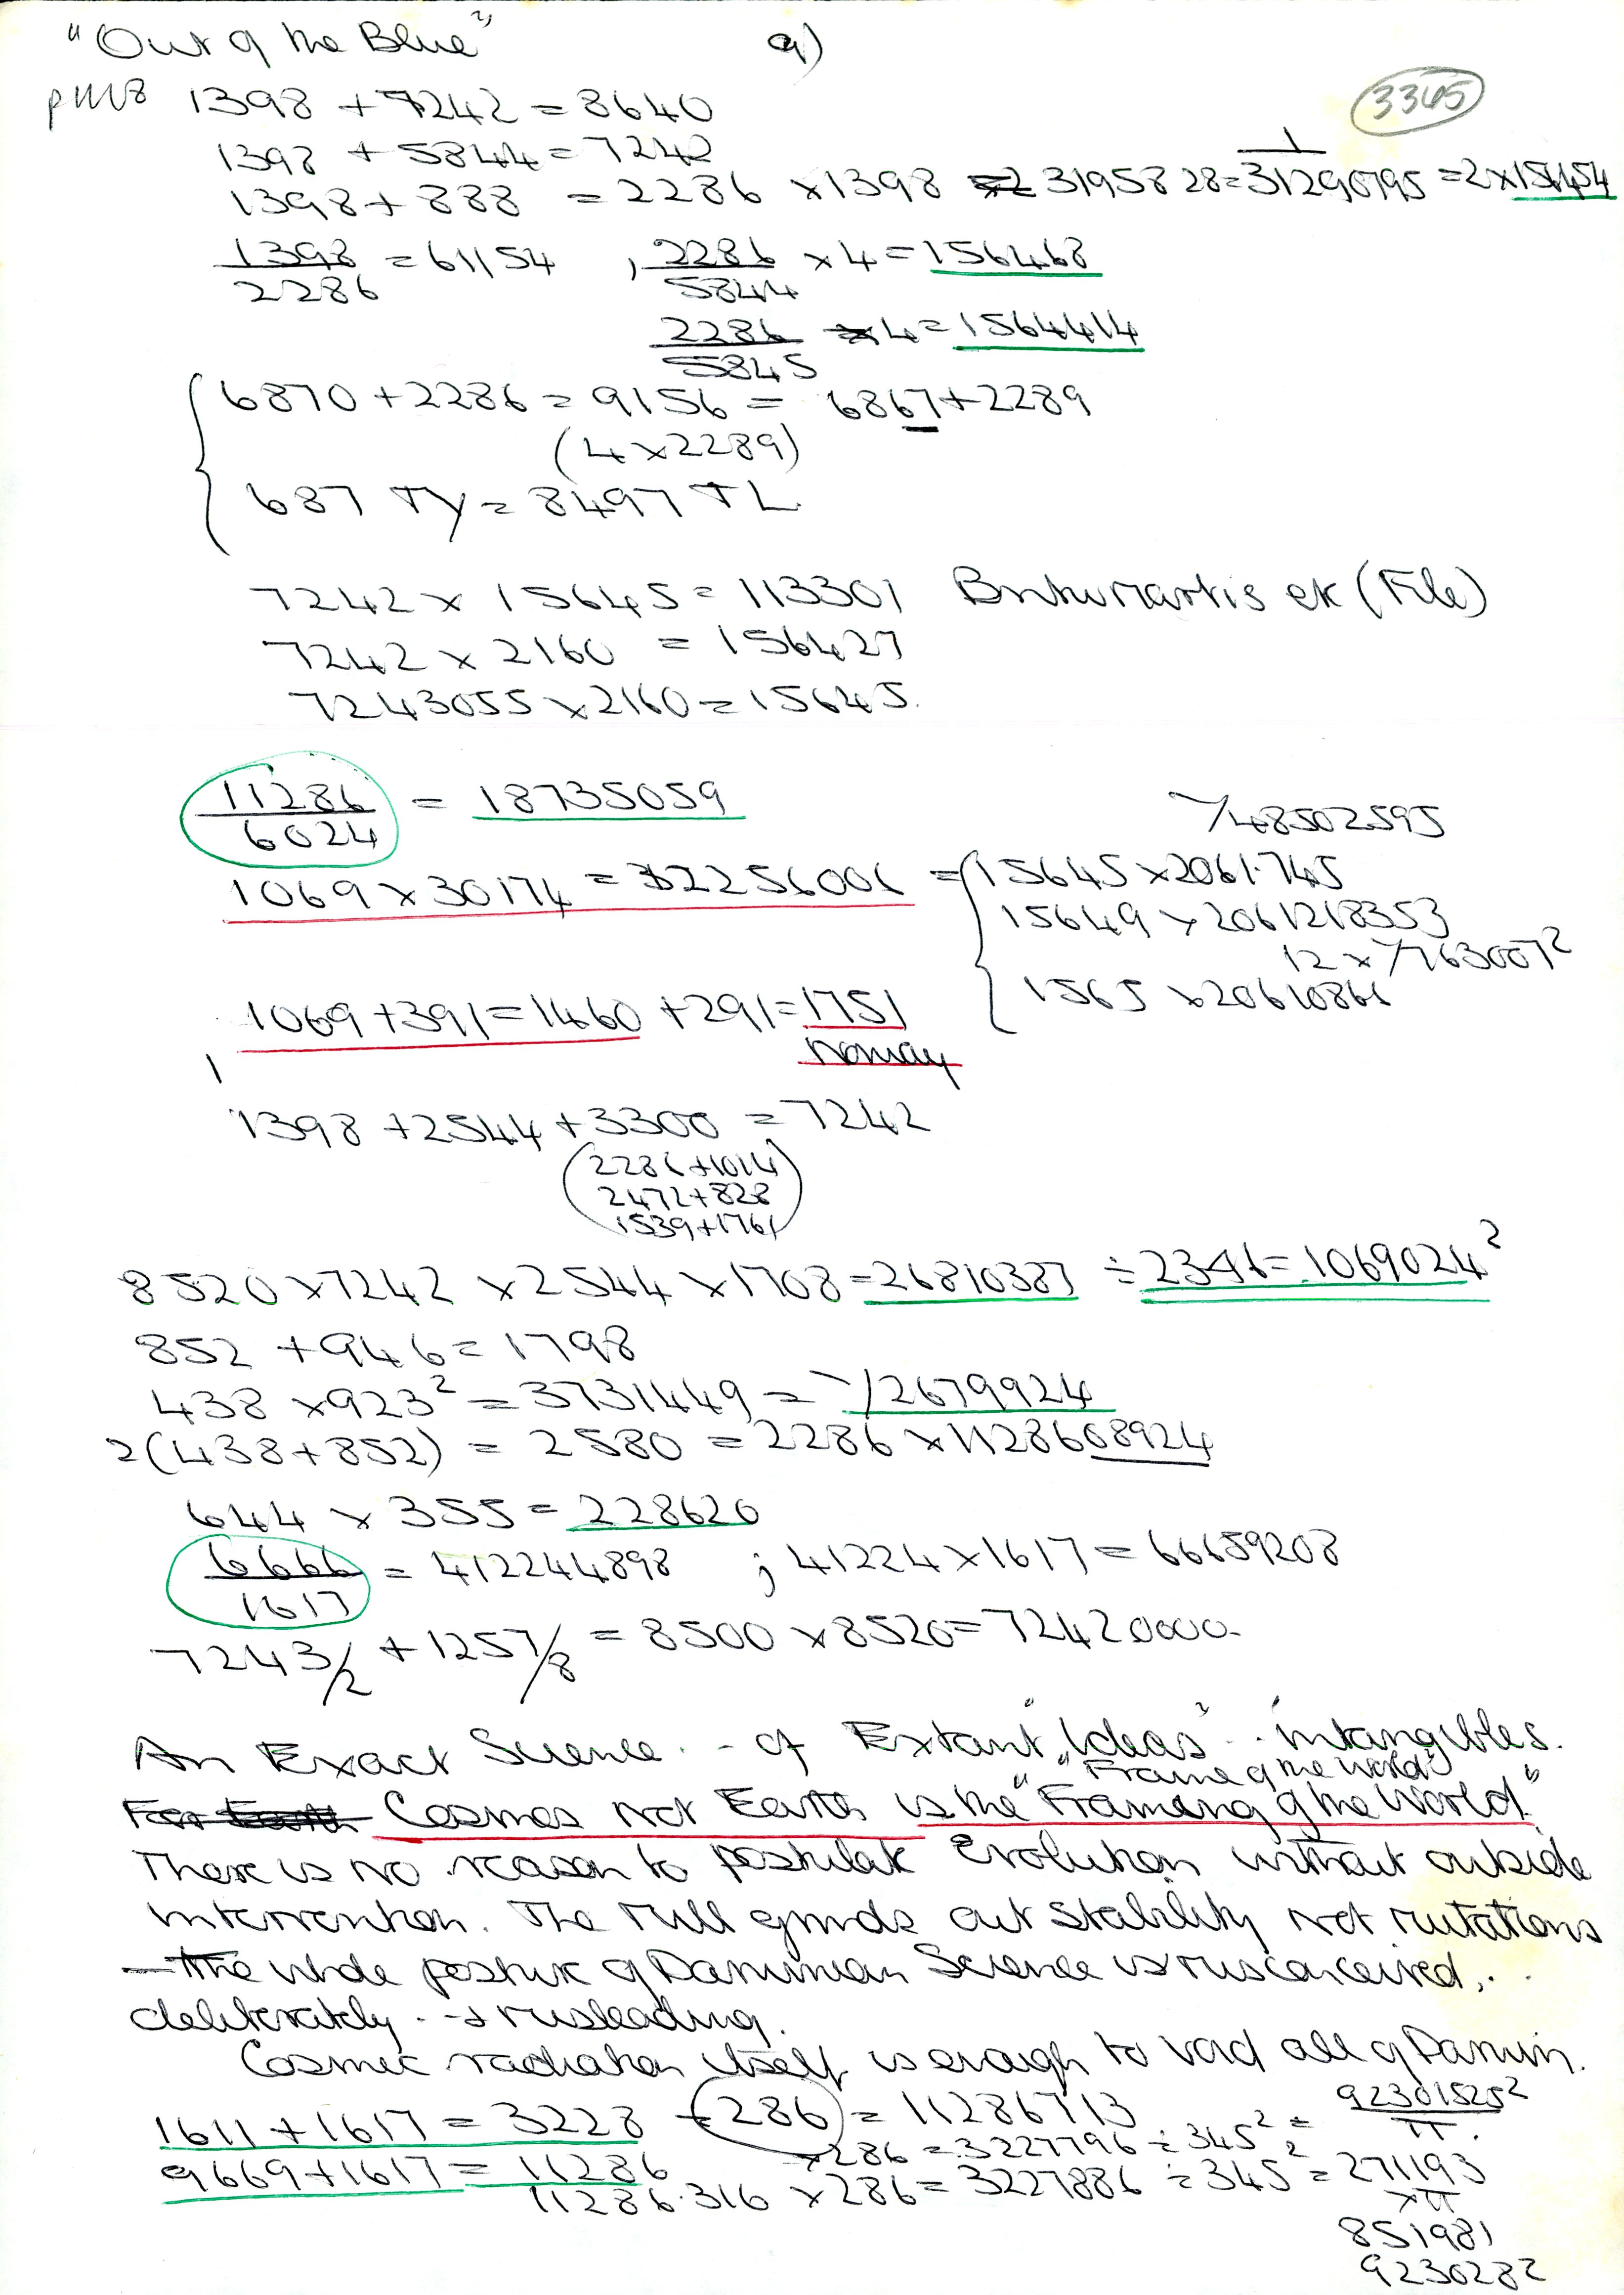 "Out of the Blue" a)
3365
1398 + 7242 = 8640
1398 + 5844 = 7242
1398 + 888 = 2286 × 1398 = 3195828 = 1/31290795 = 2 × 156454
1398/2286 = 61154 , 2286/5844 × 4 = 156468
2286/5845 × 4 = 1564414
6870 + 2286 = 9156 = 6867 + 2289
(4 × 2289)
687 TY = 8497 TL
7242 × 15645 = 113301 (File)
7242 × 2160 = 156427
7243055 × 2160 = 15645.
11286/6024 = 18735059
√48502595
1069 × 30174 = 32256006 = 15645 × 2061.745
15649 × 2061218353
12 × 
1565 × 20610866
1069 + 391 = 1460 + 291 = 1751
Norway
1398 + 2544 + 3300 = 7242
(2286 + 1014
2472 + 828
1539 + 1761)
8520 × 7242 × 2544 × 1708 = 26810387 ÷ 2346 = 1069024²
852 + 946 = 1798
438 × 923² = 3731449 = √2679924
2(438 + 852) = 2580 = 2286 × 1128608924
644 × 355 = 228620
6666/1617 = 412244898 ; 41224 × 1617 = 66659208
7243/2 + 1257/8 = 8500 × 8520 = 72420000
An Exact Science .. of Extant "Ideas" .. intangibles.
"Frame of the World"
Cosmos not Earth is the "Framing of the World"
There is no reason to postulate Evolution without outside
intervention. The mill grinds out stability not mutations
– the whole posture of Darwinian Science is misconceived,..
deliberately. → misleading.
Cosmic radiation itself is enough to void all of Darwin.
1611 + 1617 = 3228 ÷ 286 = 11286713
× 286 = 3227796 ÷ 345² = 92301525²/π
9669 + 1617 = 11286
11286.316 × 286 = 3227886 ÷ 345² = 271193
× π
851981
9230282